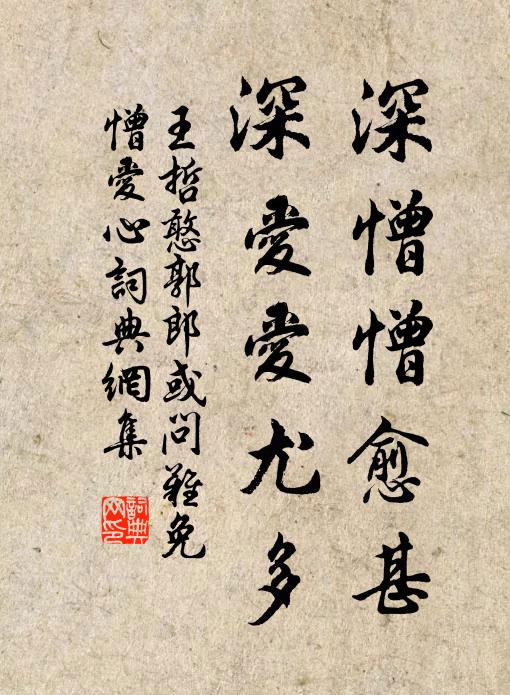 深憎憎愈甚
深愛愛尤多
王哲憨郭郎或問難免
憎愛心詞典網集
詞典
网印